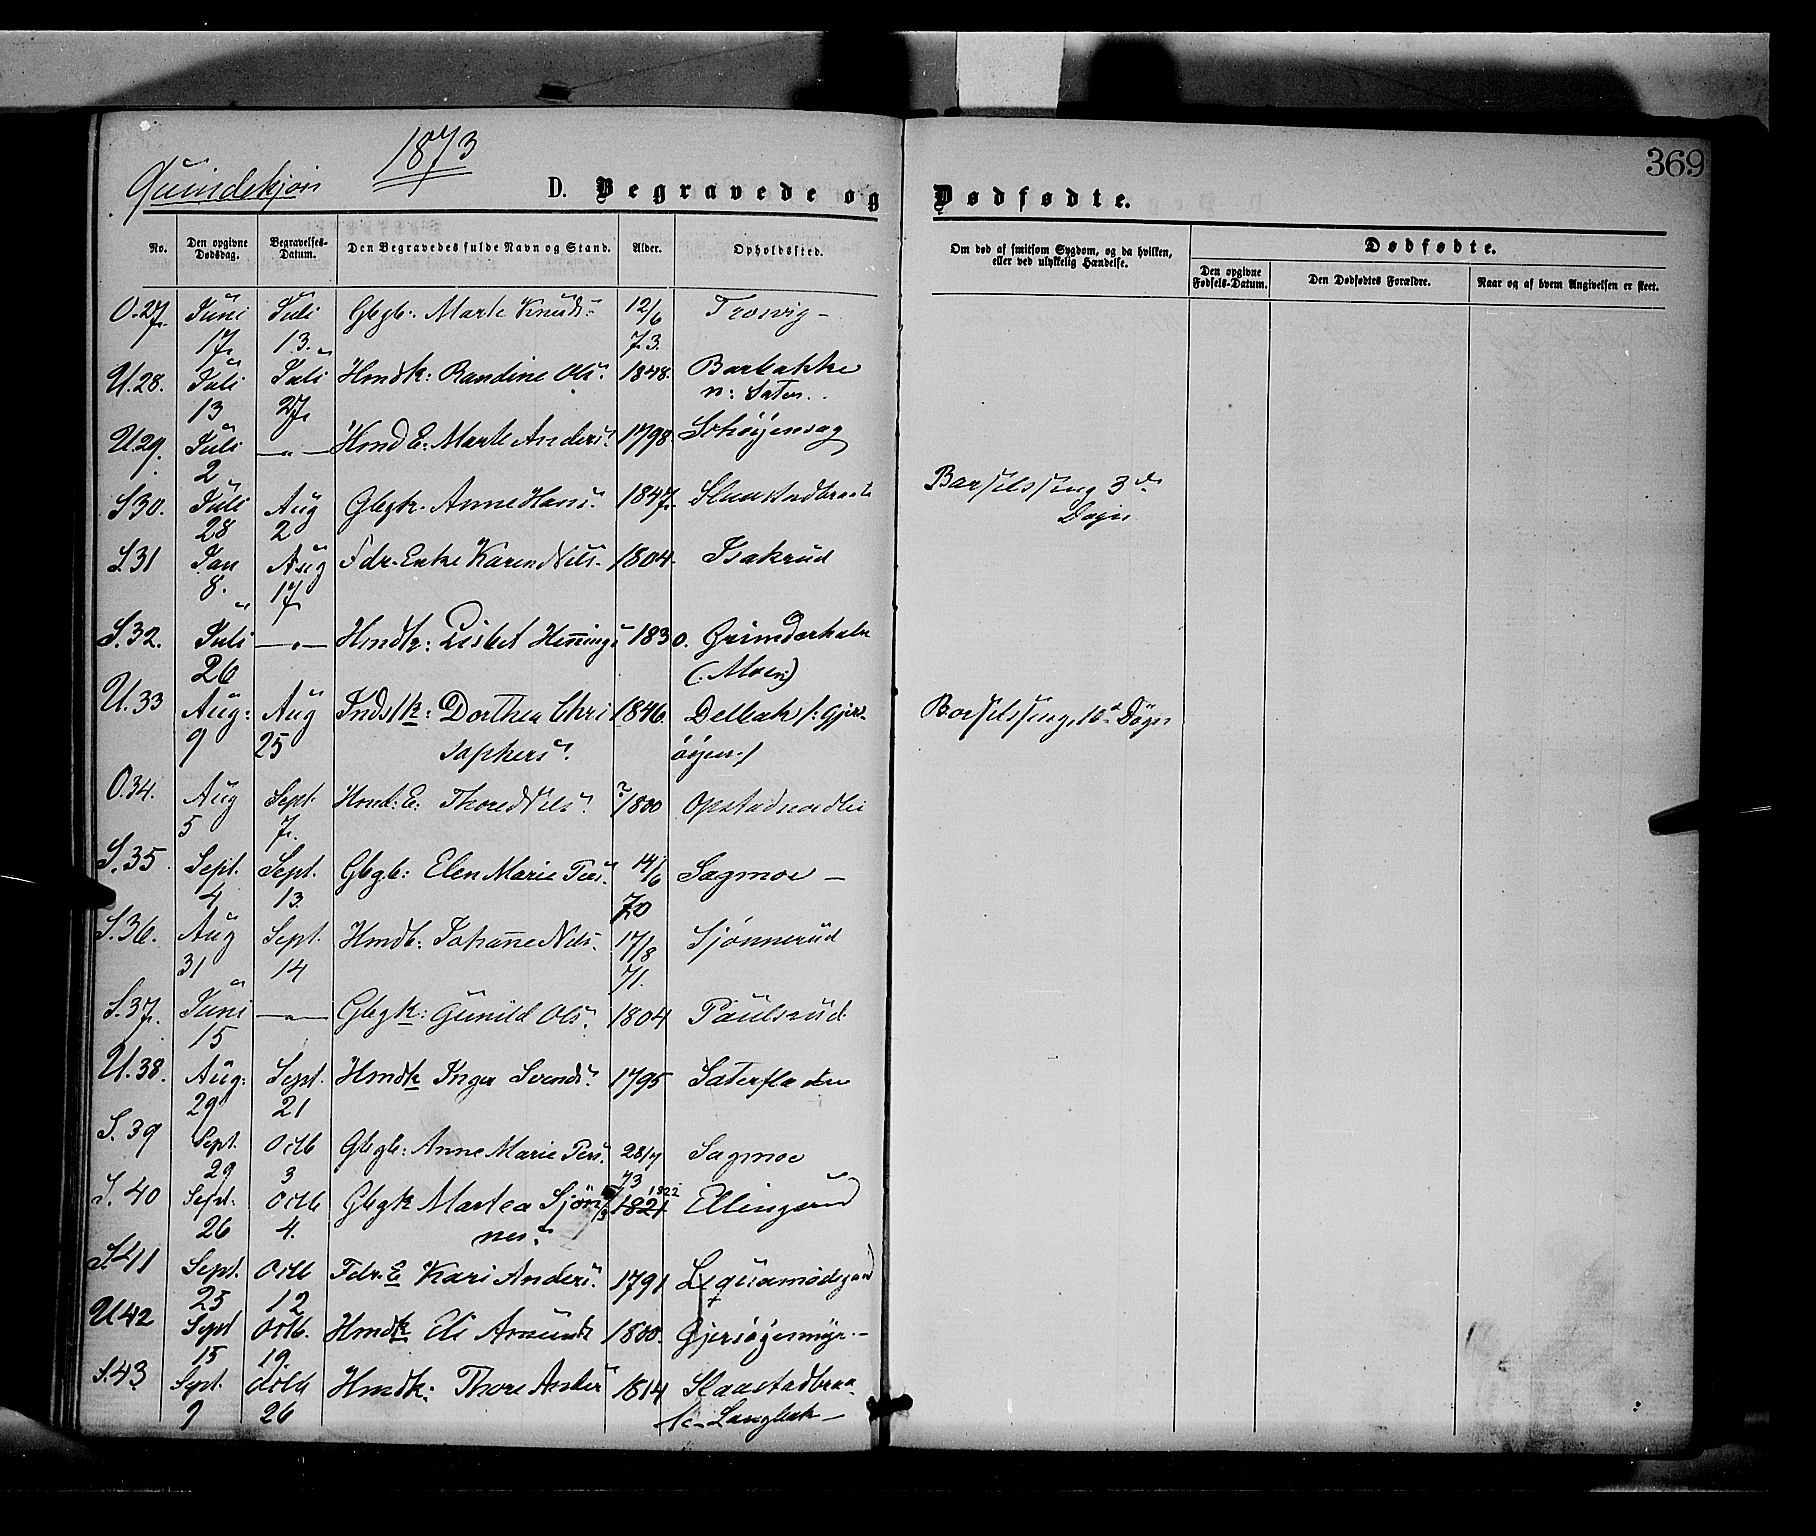 369
1873
Quindekjøn
D. Begravede og Dødfødte.
No. Den opgivne Dødsdag. Begravelses-Datum. Den Begravedes fulde Navn og Stand. Alder. Opholdssted. Om død af smitsom Sygdom, og da hvilken, eller ved ulykkelig Hændelse. Dødfødte.
Den opgivne Fødsels-Datum. Den Dødfødtes Forældre. Naar og af hvem Angivelsen er skeet.
O.27. Juni Juli Gbgb. Marte Knuds 12/6
17. 13. 73.
U.28. Juli Juli Hmdk: Randine Ols. 1848. Barbakke
13 27. n: Sater.
U.29. Juli —"— Hmd E. Marte Anders. 1798.
2
S.30. Juli Aug Gbgk. Anne Hans. 1847. Barselseng 3
28 2
S.31 Jan Aug Fdr. Enke Karen Nils. 1804. Isakrud
8. 17.
S.32. Juli —"— Hmdk: Lisbet Hennings 1830.
26 (Moen)
U.33 Aug: Aug Indstk: Dorthea Chri 1846.
9 25 Barselseng,
O.34. Aug Sept. Hmd: E: Thore Nils. ?/1800
5 7.
S.35. Sept. Sept. Gbgb: Elen Marie Pers. 14/6 Sagmoe —
4 13. 70
S.36. Aug Sept. Hmdb: Johanne Nils. 17/8 Sjønnerud
31 14 71.
S.37. Juni —"— Gbgk: Gunild Ols. 1804 Paulsrud
15
U.38. Aug: Sept. Hmdk Inger Svends. 1795
29 21
S.39 Sept. Octb Gbgb: Anne Marie Pers. 28/7 Sagmoe
29 3 73
S.40 Sept. Octb Gbgk Martea Sjön 1821 1822
26 4. nes.
S.41 Sept. Octb Fdr. E Kari Anders. 1791
25 12
U.42 Sept Octb. Hmdk Eli Amunds 1800.
15 19.
S.43 Sept. Octb Hmdk: Thore Anders 1814 Slaastadbraa
9 26 te- Langbak —